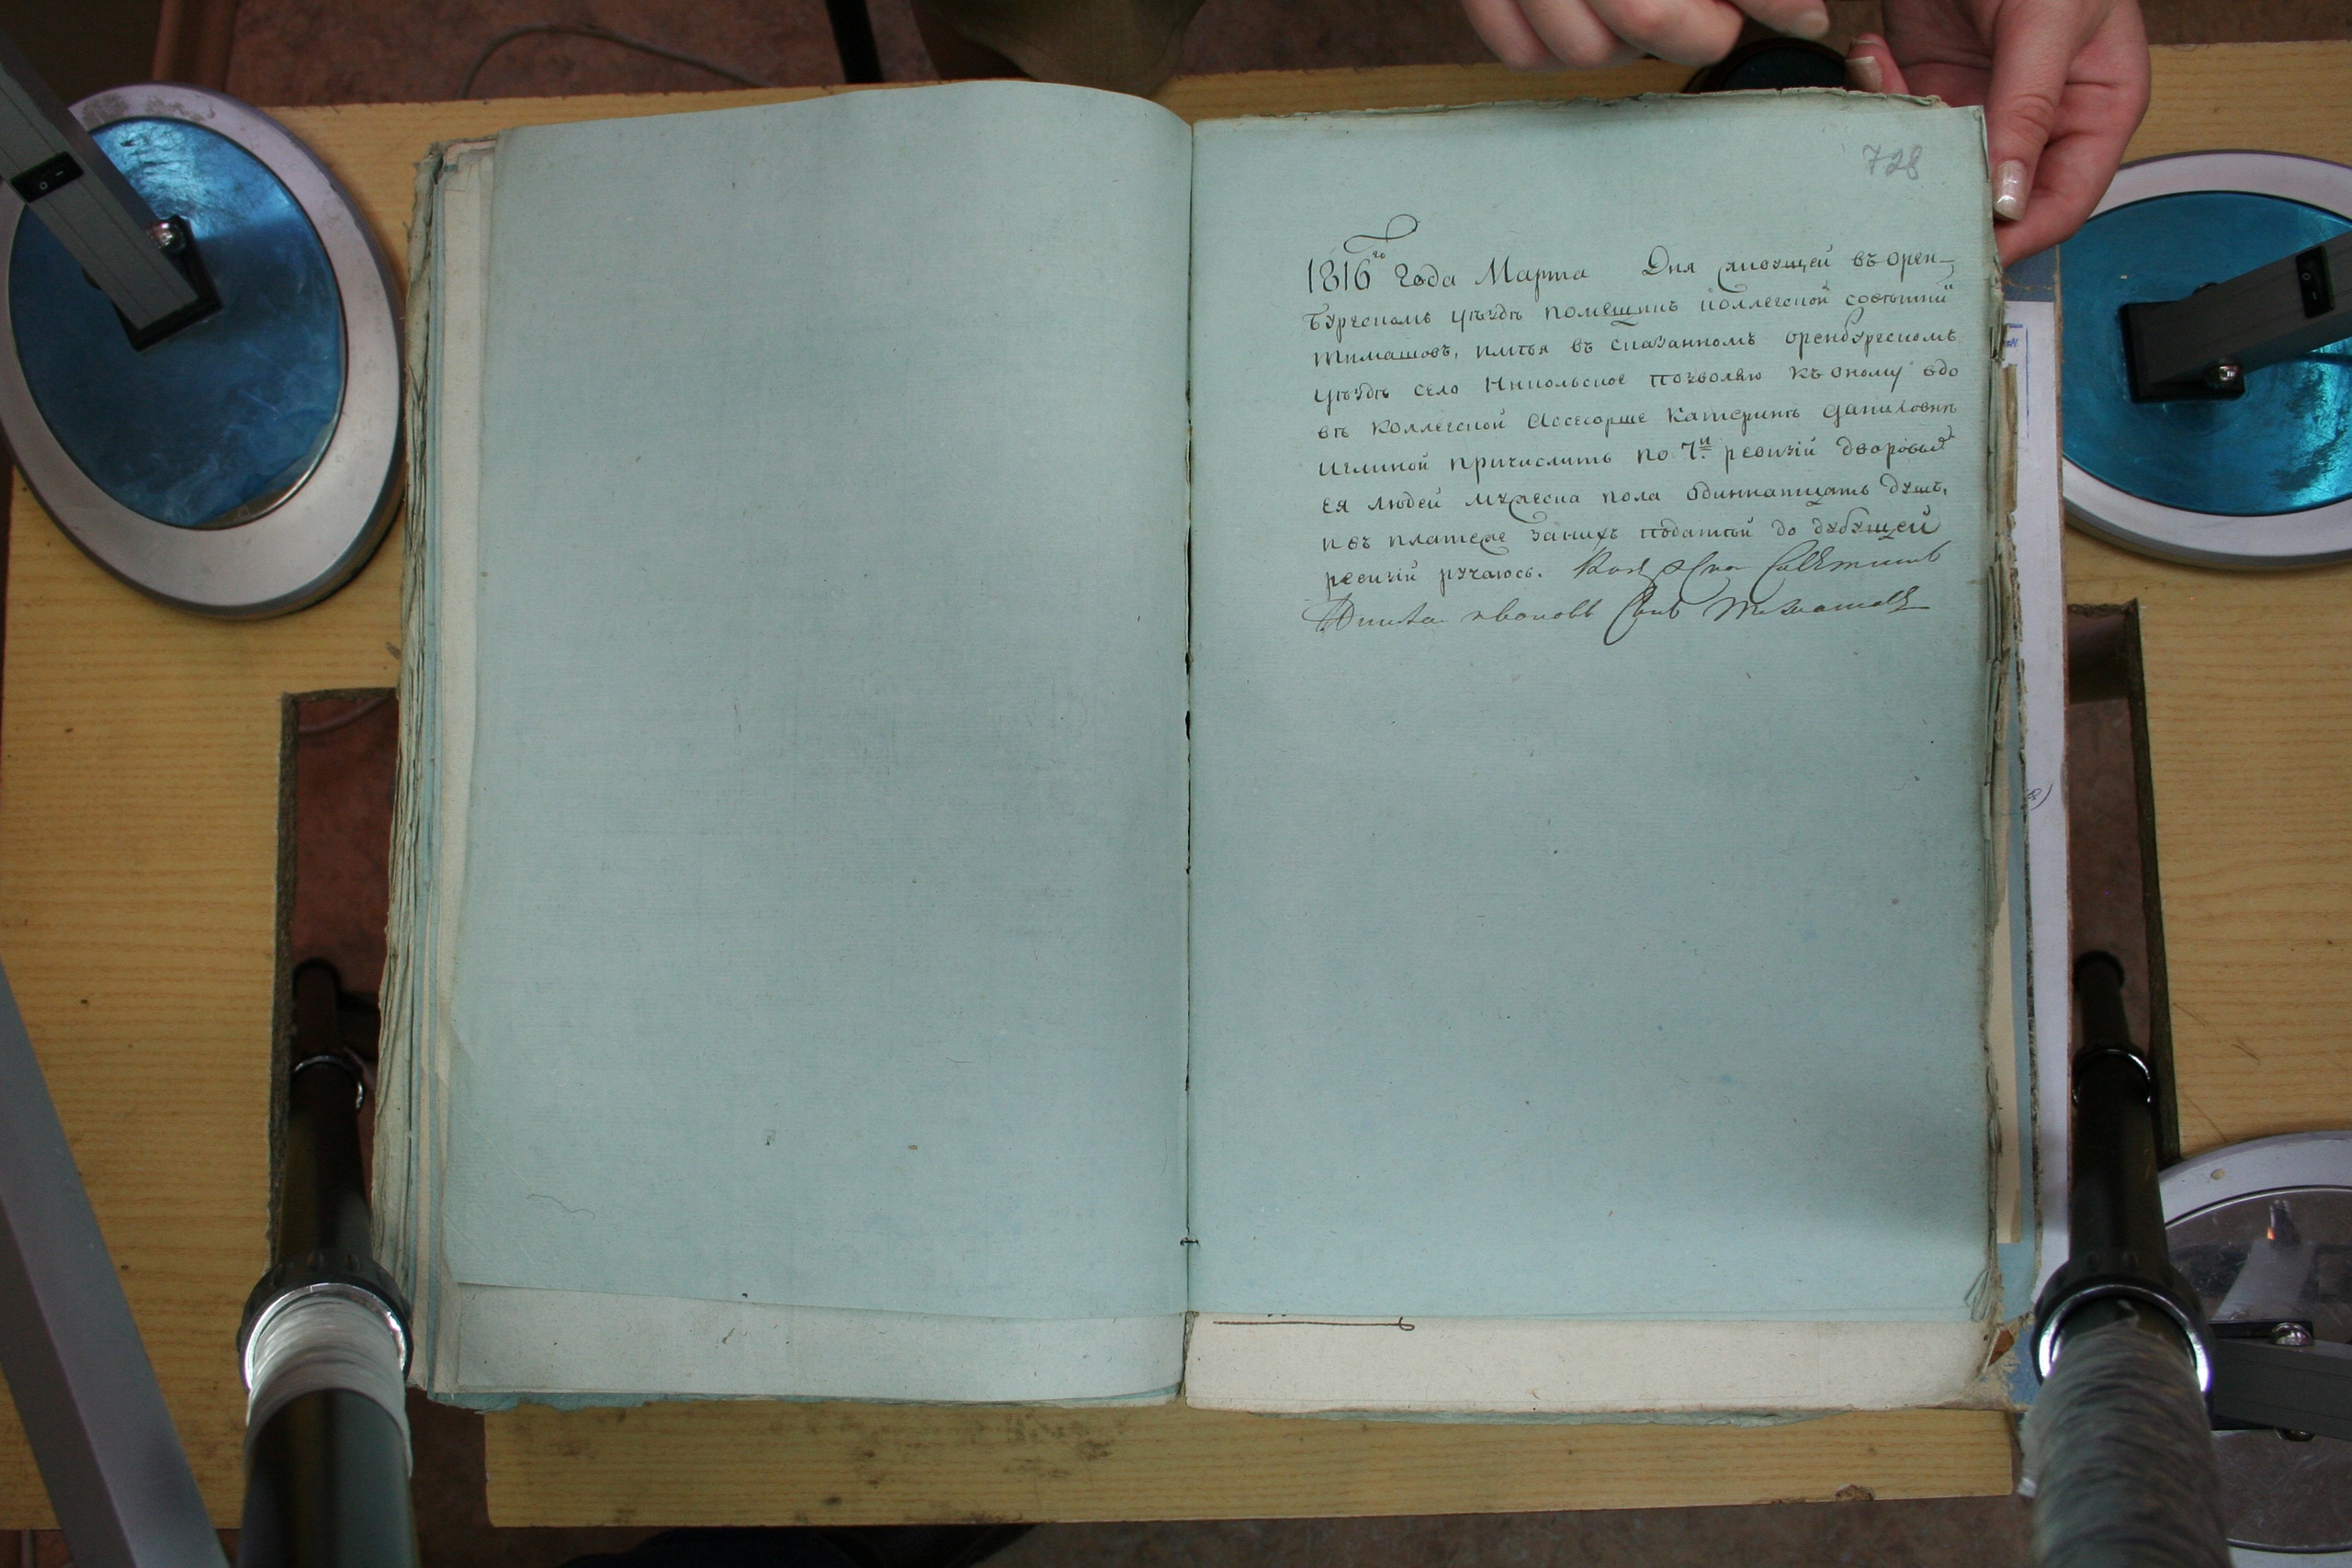 728
1816го Года Марта Дня я нижущей въ Орен-
бургскомъ уѣздѣ помѣщикъ коллегской совѣтникъ
тимашовъ, имѣя въ сказанномъ оренбургскомъ
уѣздѣ село Никольское позволяю къ оному вдо
вѣ Коллегской Ассесорше Катеринѣ Даниловнѣ
причислить по 7й ревизій дворовыхъ
ея людей мужеска пола одиннатцать душъ,
и въ платеже занихъ податтей до будущей
ревизій ручаюсь. Советникъ
ивановъ Сынъ Тимашовъ